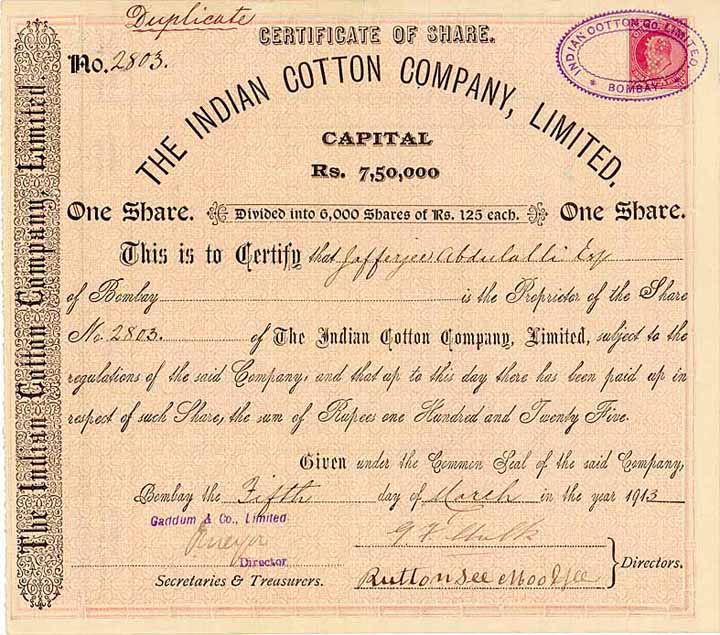 Duplicate
CERTIFICATE OF SHARE.
No. 2803.
INDIAN COTTON Co. LIMITED.
* BOMBAY *
THE INDIAN COTTON COMPANY, LIMITED.
CAPITAL
Rs. 7,50,000
One Share. Divided into 6,000 Shares of Rs. 125 each. One Share.
This is to Certify that Jafferjee Abdulalli Esq
of Bombay is the Proprietor of the Share
No. 2803. of The Indian Cotton Company, Limited, subject to the
regulations of the said Company, and that up to this day there has been paid up in
respect of such Share, the sum of Rupees one Hundred and Twenty Five.
Given under the Common Seal of the said Company,
Bombay the Fifth day of March in the year 1913
Gaddum & Co., Limited.
Director
Secretaries & Treasurers.
Ruttonsee Mooljee
Directors.
The Indian Cotton Company, Limited.